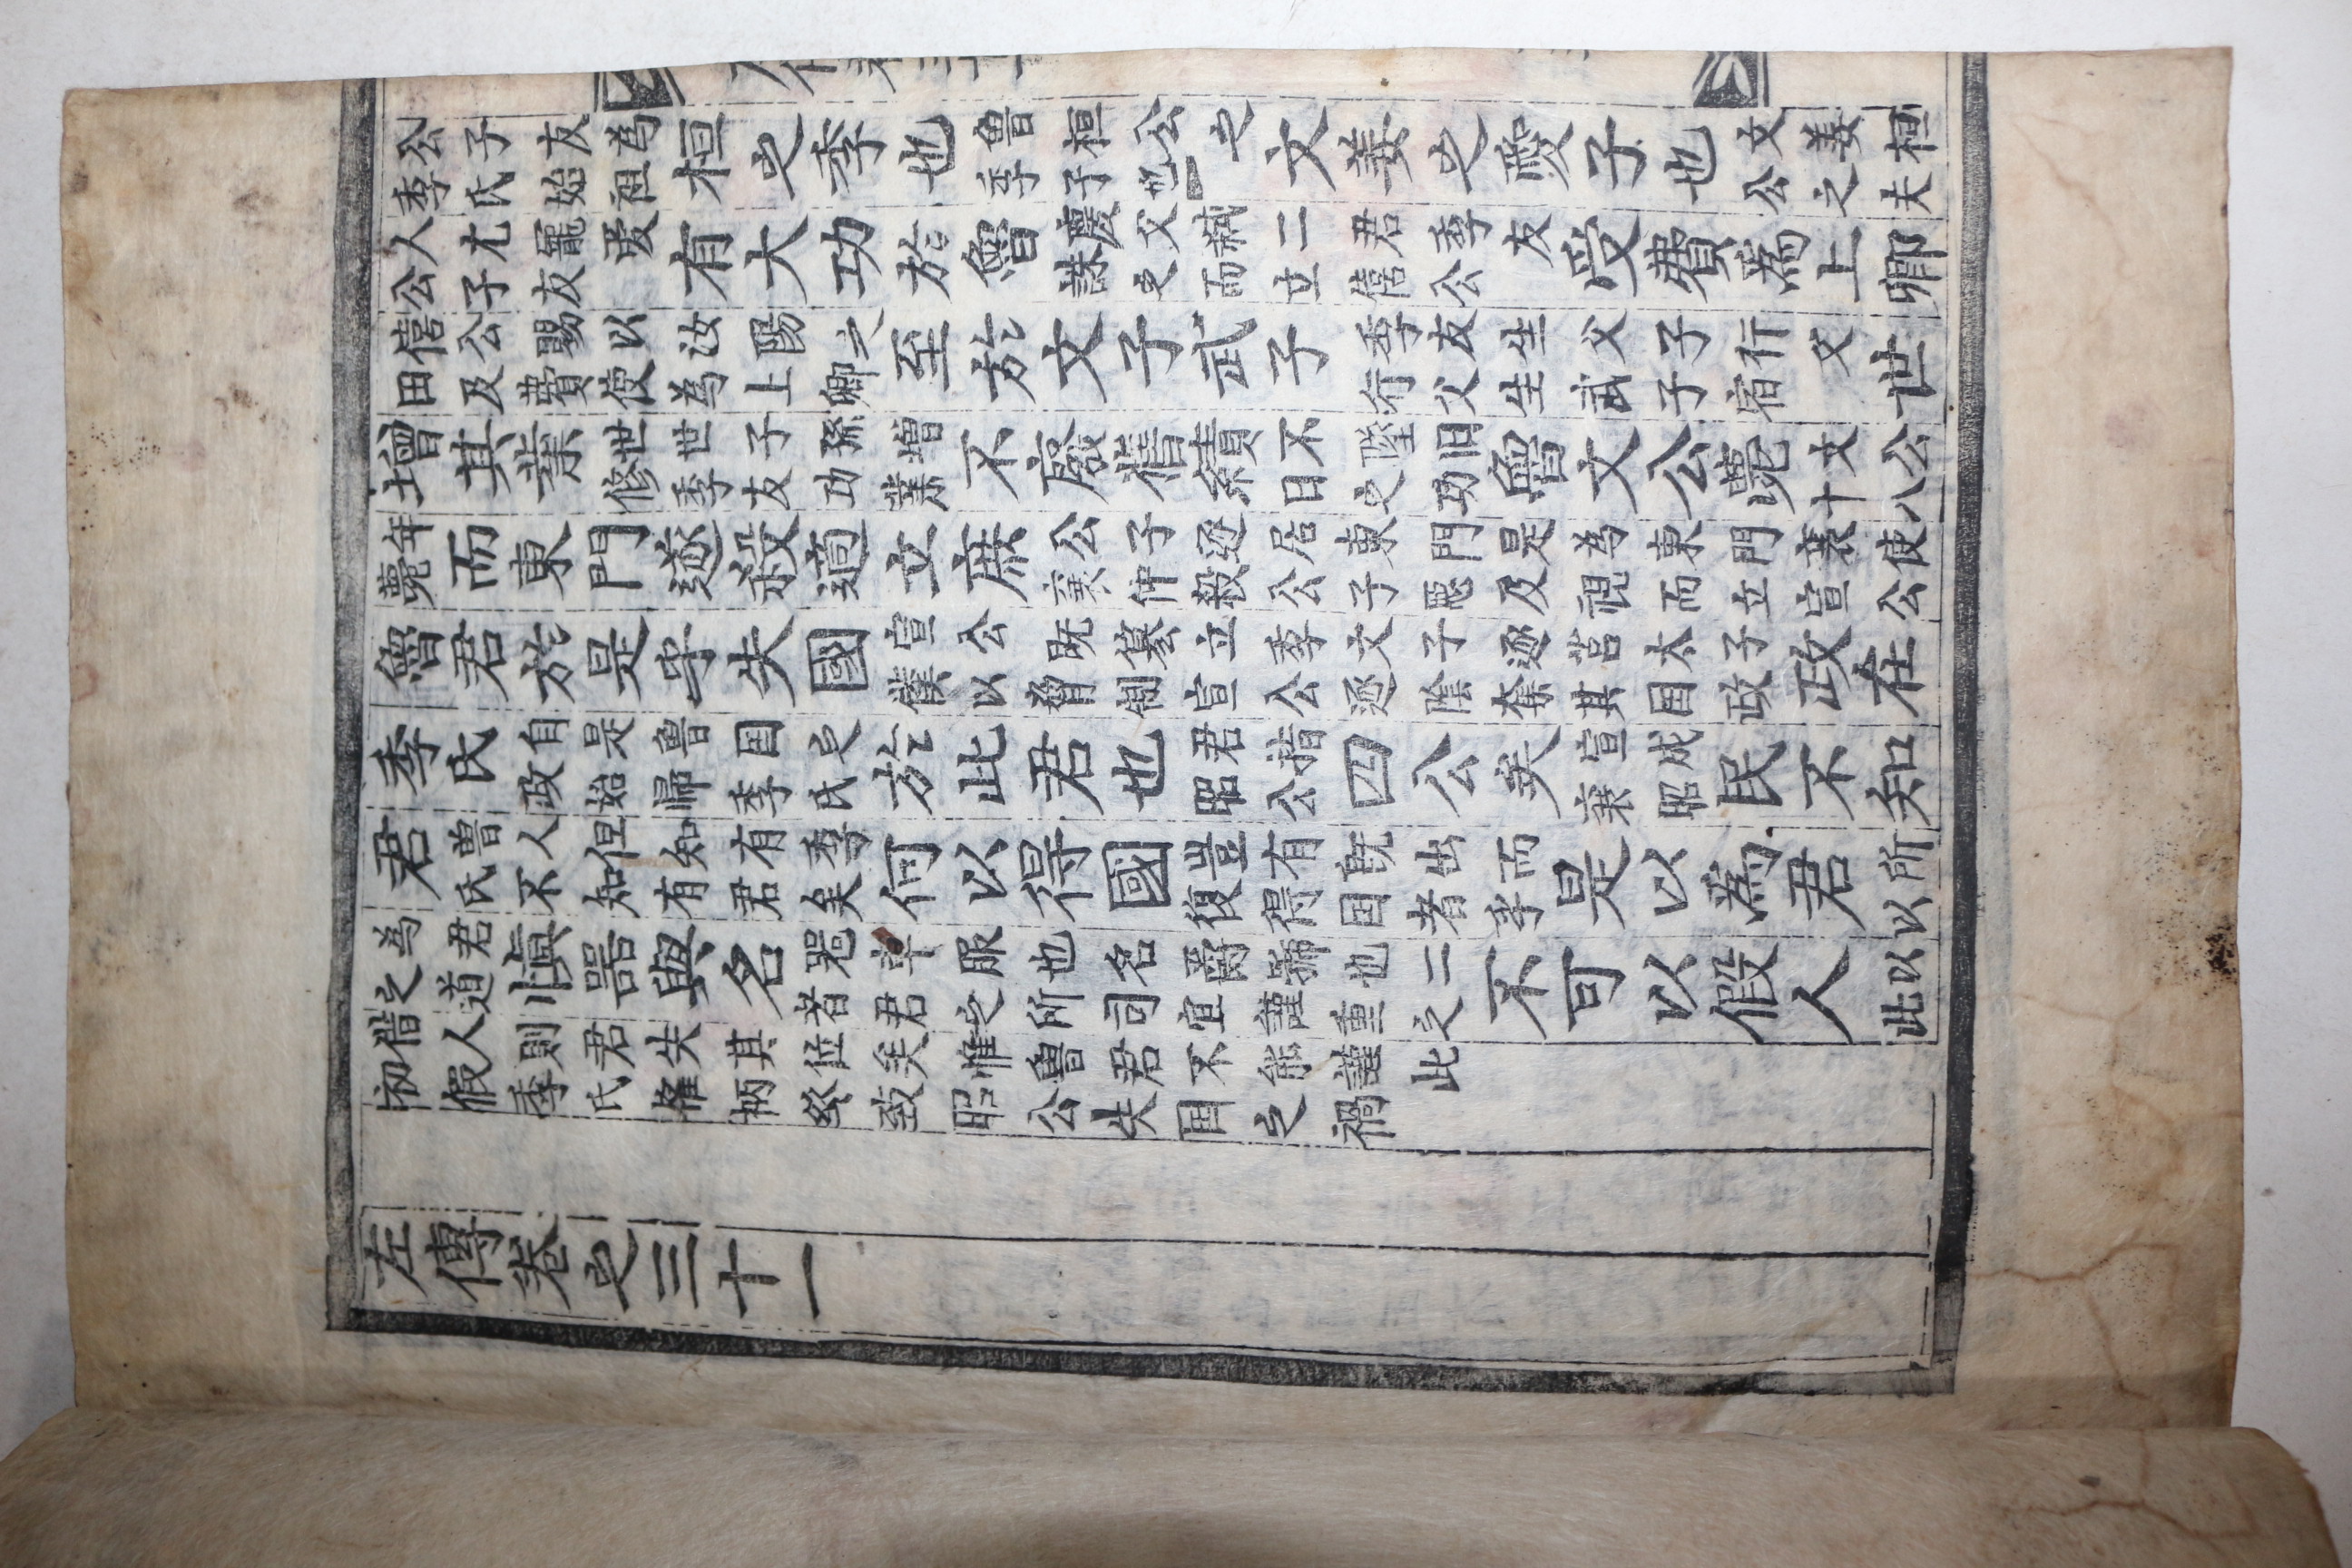 公子友為季氏始祖桓之季也魯桓公之季子也文姜之愛子也文姜桓公之夫
人尤寵愛公子友有大功於魯慶父弒二君季友誅之而立僖公受費爲上卿
僖公賜以汝陽之田及費使為上卿至於文子武子季友生父子行父行父生武子宿世
增其業世世子孫增修季友功業不廢舊績不墜旧日之功魯文公薨文公十八
年薨而東門遂殺適立庶公子遂居東門是為東門襄使襄仲殺公子惡及視而立宣公
魯君於是乎失國宣公既篡立季文子逐莒太子僕以脅制宣公遂陰奪其囯政政在
季氏自是魯囯之政始帰季氏於此君也君指昭公四公矣宣成襄昭民不知
君曽人但知有季氏不知有君矣何以得國豈有既出而復得囯者乎是以爲君所以
為君之道愼器與名器車服也名爵號也二者君之所司宜謹重之不可以假人以此
偕人則君失其位矣惟魯君不能謹此初假季氏權柄終致昭公失囯之禍
左傳卷之三十一